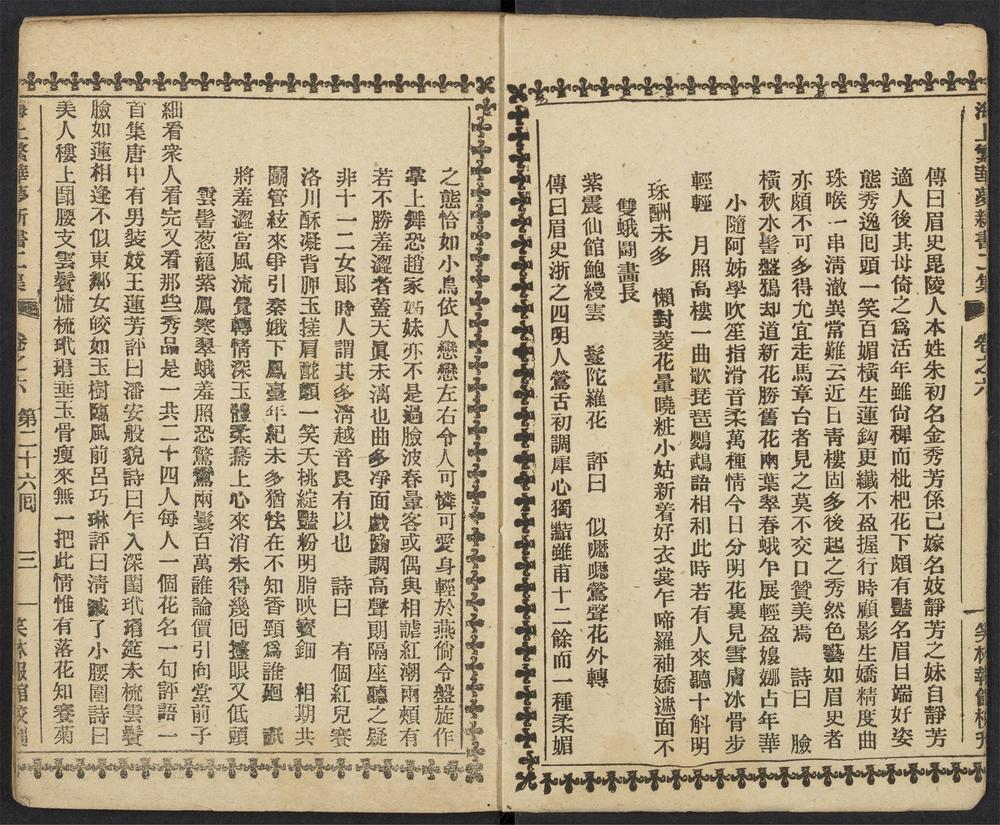 海上繁華夢新書二集 卷之六 笑林報館校刊
傳曰眉史毘陵人本姓朱初名金秀芳係己嫁名妓靜芳之妹自靜芳
適人後其母倚之爲活年雖尙穉而枇杷花下頗有豔名眉目端好姿
態秀逸囘頭一笑百媚橫生蓮鈎更纖不盈握行時顧影生嬌精度曲
珠喉一串淸澈異常難云近日靑樓固多後起之秀然色藝如眉史者
亦頗不可多得尤宜走馬章台者見之莫不交口贊美焉 詩曰 臉
橫秋水髻盤鴉却道新花勝舊花兩葉翠春蛾乍展輕盈嬝娜占年華
小隨阿姊學吹笙指滑音柔萬種情今日分明花裏見雪膚冰骨步
輕輕 月照高樓一曲歌琵琶鸚鵡語相和此時若有人來聽十斛明
珠酬未多 懶對菱花暈曉粧小姑新着好衣裳乍啼羅袖嬌遮面不
雙蛾鬪畵長
紫震仙館鮑縵雲 鬘陀羅花 評曰 似嚦嚦鶯聲花外轉
傳曰眉史浙之四明人鶯舌初調犀心獨黠雖甫十二餘而一種柔媚
之態恰如小鳥依人戀戀左右令人可憐可愛身輕於燕倘令盤旋作
掌上舞恐趙家姊妹亦不是過臉波春暈客或偶與相謔紅潮兩頰有
若不勝羞澀者蓋天眞未漓也曲多凈面戲扮調高聲朗隔座聽之疑
非十一二女郎時人謂其多淸越音良有以也 詩曰 有個紅兒賽
洛川酥凝背胛玉搓肩靦顏一笑天桃綻豔粉明脂映寳鈿 相期共
鬪管絃來爭引秦娥下鳳臺年紀未多猶怯在不知香頸爲誰廻 戲
將羞澀當風流覺轉情深玉體柔驀上心來消未得幾囘擡眼又低頭
雲髻葱蘢紫鳳寒翠蛾羞照恐驚鸞兩鬟百萬誰論價引向堂前子
細看衆人看完又看那些秀品是一共二十四人每人一個花名一句評語一
首集唐中有男裝妓王蓮芳評曰潘安般貌詩曰乍入深閨玳瑁筵未梳雲鬢
臉如蓮相逢不似東鄰女皎如玉樹臨風前呂巧琳評曰淸減了小腰圍詩曰
美人樓上鬪腰支雲鬢慵梳玳瑁垂玉骨瘦來無一把此情惟有落花知賽菊
海上繁華夢新書二集 卷之六 第二十六囘 三 笑林報館校刊